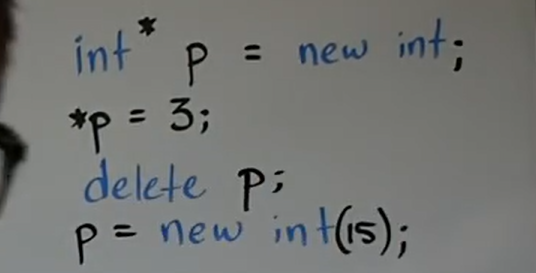 int* p = new int;
*p = 3;
delete p;
p = new int(15);